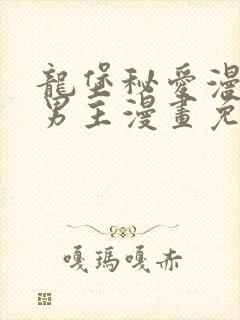 龍堡秘愛漫
男主漫畫免
嘎瑪嘎赤